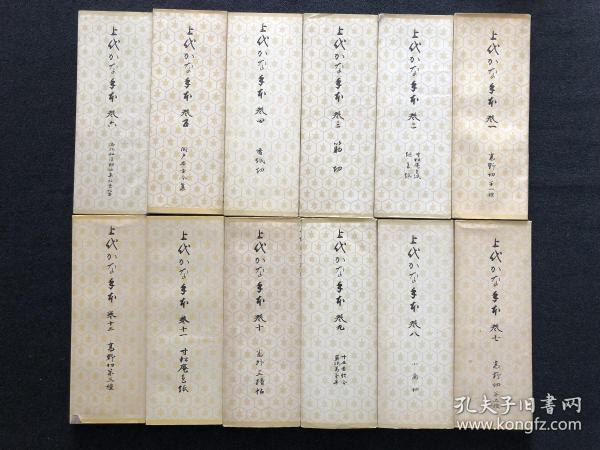 上代かな手本 巻一
高野切第一種
上代かな手本 巻二
寸松庵色紙
継色紙
上代かな手本 巻三
筋切
上代かな手本 巻四
香紙切
上代かな手本 巻五
関戸本古今集
上代かな手本 巻六
上代かな手本 巻七
高野切第二種
上代かな手本 巻八
小島切
上代かな手本 巻九
上代かな手本 巻十
上代かな手本 巻十一
寸松庵色紙
上代かな手本 巻十二
高野切第三種
孔夫子旧书网
www.kongfz.com